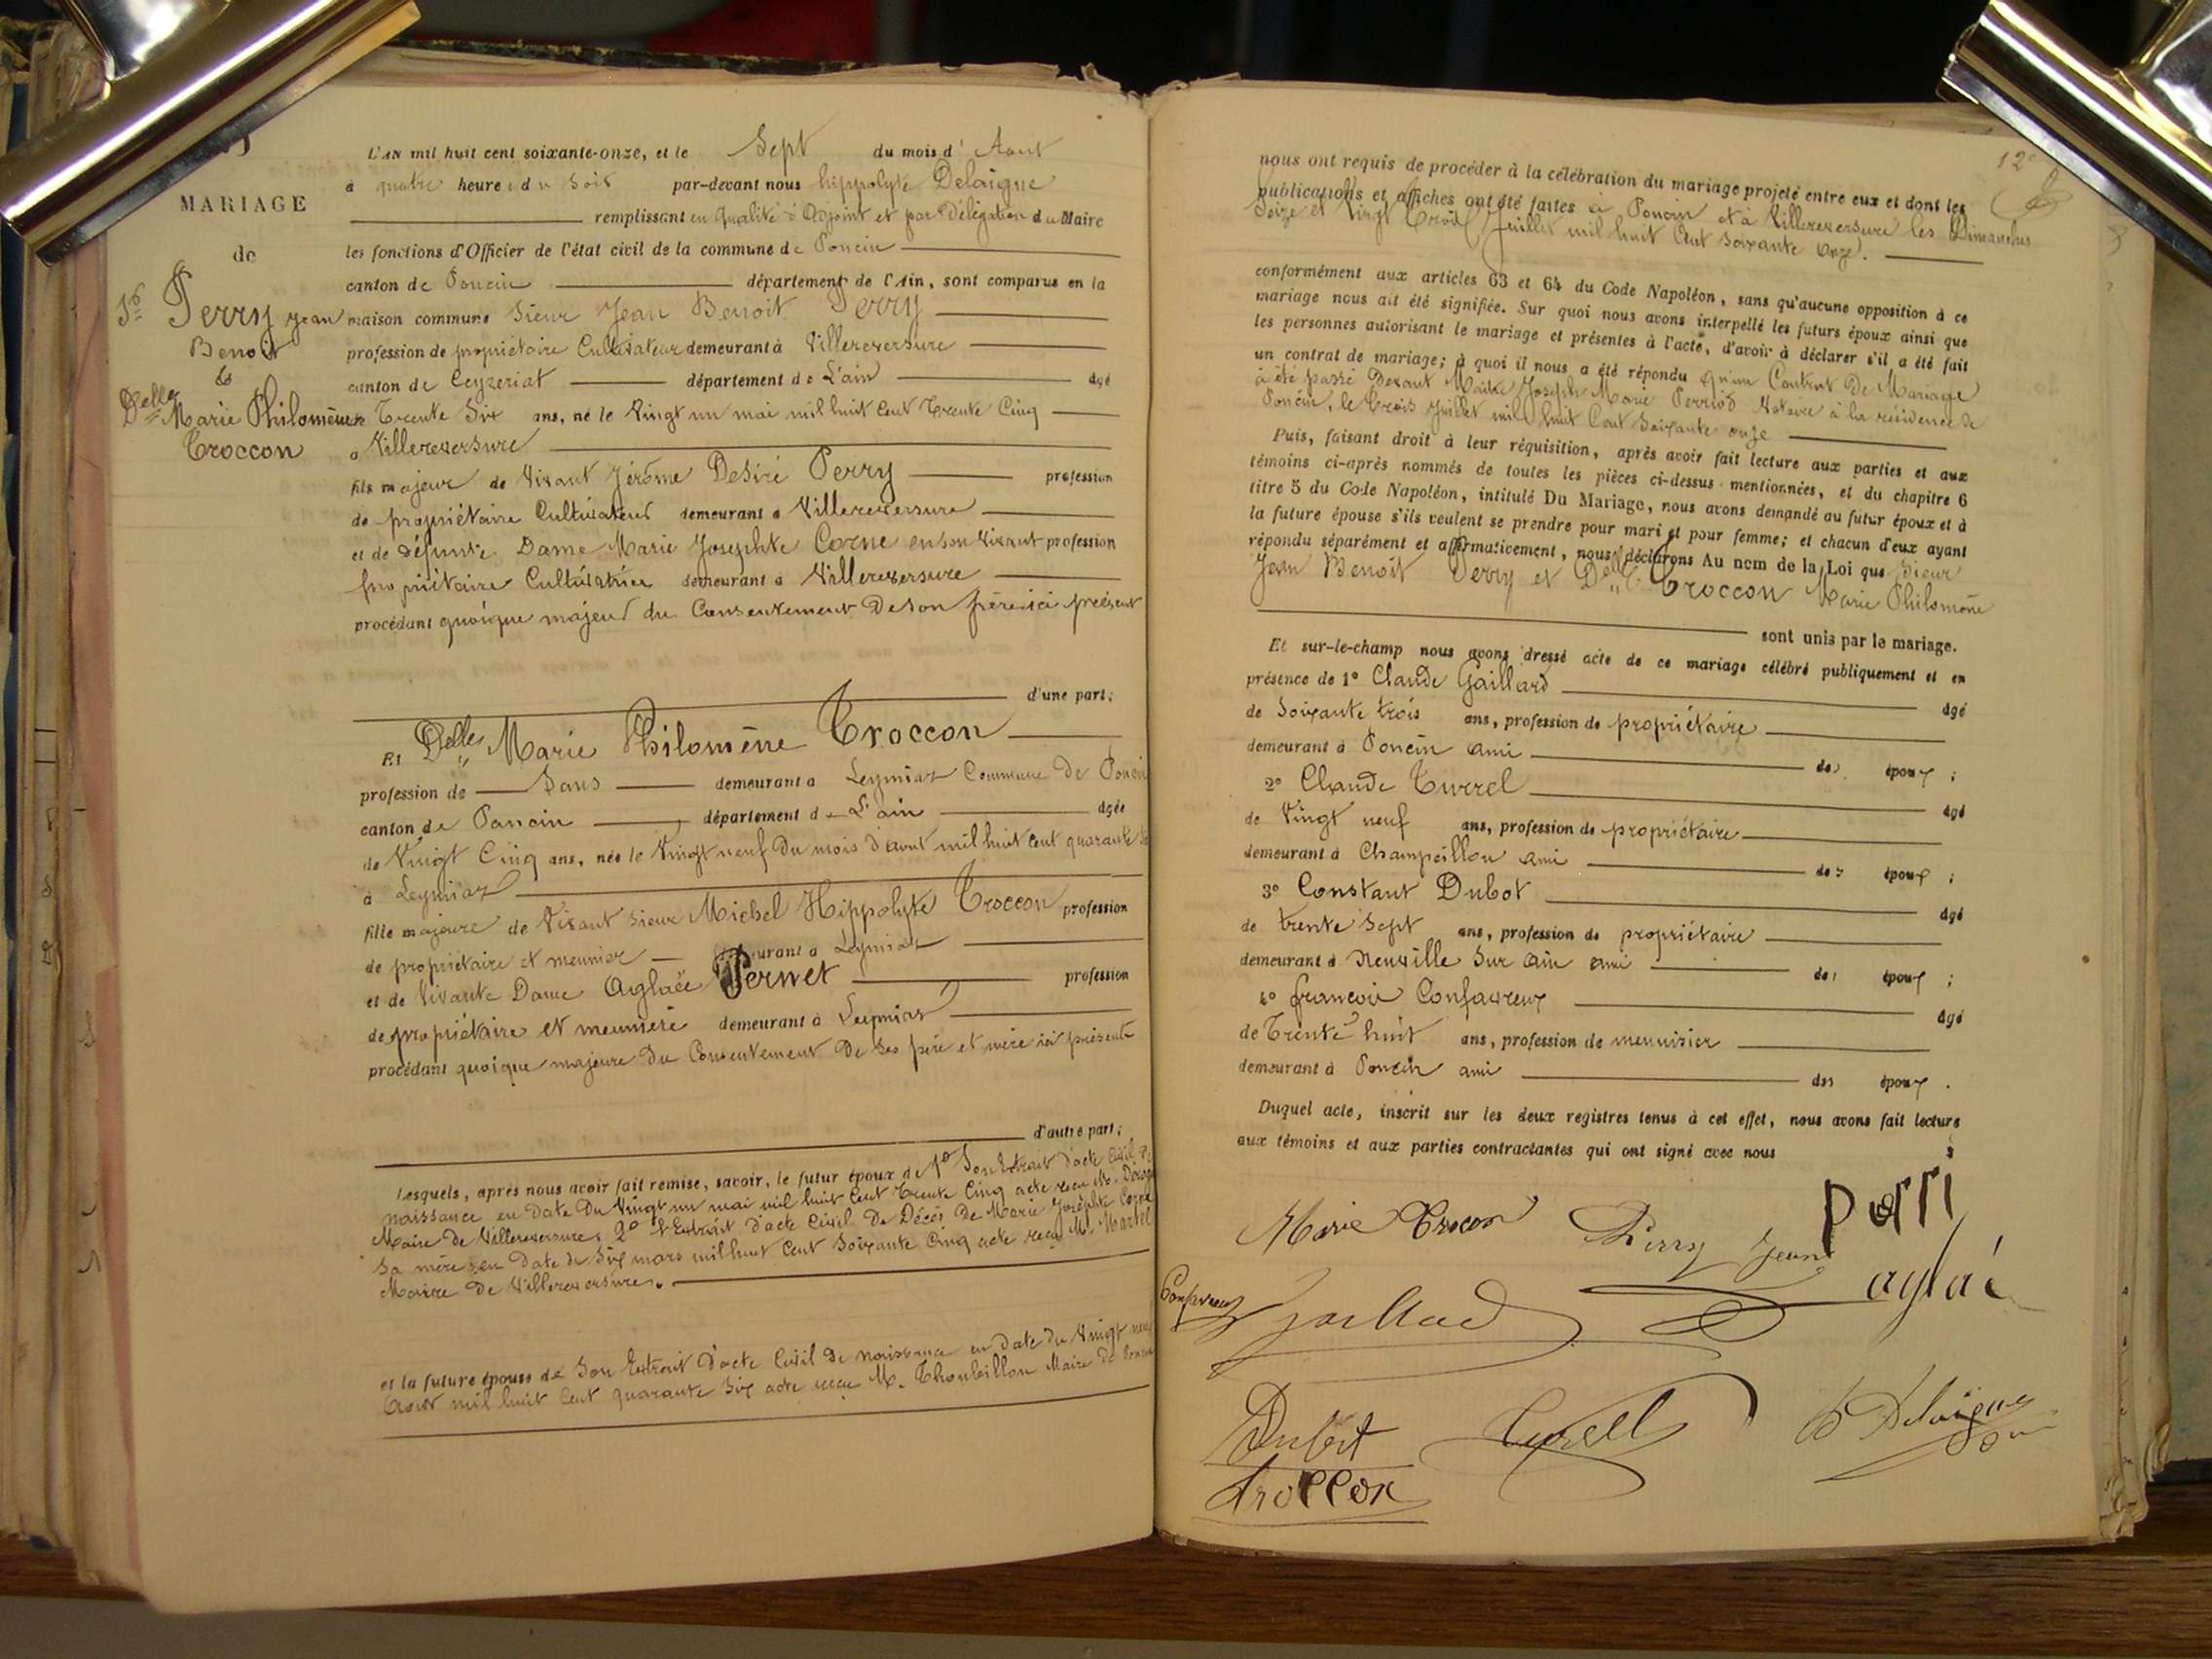 MARIAGE
de
Sr Perry Jean
Benoit
&
Delle Marie Philomène
Troccon
L'AN mil huit cent soixante-onze, et le Sept du mois d'Aout
à quatre heures du Soir par-devant nous hippolyte Delaigue
remplissant en qualité d'adjoint et par Délégation du Maire
les fonctions d'Officier de l'état civil de la commune de Poncin
canton de Poncin département de l'Ain, sont comparus en la
maison commune Sieur Jean Benoit Perry
profession de propriétaire Cultivateur demeurant à Villereversure
canton de Ceyzeriat département de L'ain âgé
de Trente Six ans, né le Vingt un mai mil huit Cent Trente Cinq
à Villereversure
fils majeur de Vivant Jérôme Desiré Perry profession
de propriétaire Cultivateur demeurant à Villereversure
et de défunte Dame Marie Josephte Corne en son Vivant profession
propriétaire Cultivatrice demeurant à Villereversure
procédant quoique majeur du Consentement De son père ici présent
d'une part;
Et Delle Marie Philomène Troccon
profession de Sans demeurant à Leymiat Commune De Poncin
canton de Poncin département de L'ain âgée
de Vingt Cinq ans, née le Vingt neuf Du mois d'aout mil huit Cent quarante
à Leymiat
fille majeure de Vivant Sieur Michel Hippolyte Troccon profession
de propriétaire et meunier demeurant à Leymiat
et de Vivante Dame Aglaée Pernet profession
de propriétaire et meunière demeurant à Leymiat
procédant quoique majeure Du Consentement De Ses père et mère ici présents
d'autre part;
Lesquels, après nous avoir fait remise, savoir, le futur époux de 1º Son Extrait d'acte Civil De
naissance en Date Du Vingt un mai mil huit Cent Trente Cinq acte recu M.
Maire De Villereversure, 2º L'Extrait d'acte Civil De Décés De Marie Josephte Corne
Sa mère, en Date du Six mars mil huit Cent Soixante Cinq acte reçu M. Martel
Maire De Villereversure.
et la future épouse de Son Extrait d'acte Civil De naissance en Date Du Vingt neuf
Aout mil huit Cent quarante Six acte recu M. Thoubillon Maire De Poncin
12e
nous ont requis de procéder à la célébration du mariage projeté entre eux et dont les
publications et affiches ont été faites à Poncin et à Villereversure les Dimanches
Seize et Vingt Trois Juillet mil huit Cent Soixante Onze.
conformément aux articles 63 et 64 du Code Napoléon, sans qu'aucune opposition à ce
mariage nous ait été signifiée. Sur quoi nous avons interpellé les futurs époux ainsi que
les personnes autorisant le mariage et présentes à l'acte, d'avoir à déclarer s'il a été fait
un contrat de mariage; à quoi il nous a été répondu qu'un Contrat De Mariage
a été passé Devant Maître Joseph Marie Perriod Notaire à la résidence de
Poncin, le Trois Juillet mil huit Cent Soixante onze
Puis, faisant droit à leur réquisition, après avoir fait lecture aux parties et aux
témoins ci-après nommés de toutes les pièces ci-dessus mentionnées, et du chapitre 6
titre 5 du Code Napoléon, intitulé Du Mariage, nous avons demandé au futur époux et à
la future épouse s'ils veulent se prendre pour mari et pour femme; et chacun d'eux ayant
répondu séparément et affirmativement, nous déclarons Au nom de la Loi que Sieur
Jean Benoit Perry et Delle Troccon Marie Philomène
sont unis par le mariage.
Et sur-le-champ nous avons dressé acte de ce mariage célébré publiquement et en
présence de 1º Claude Gaillard âgé
de Soixante trois ans, profession de propriétaire
demeurant à Poncin ami des époux ;
2º Claude Turrel âgé
de Vingt neuf ans, profession de propriétaire
demeurant à Champeillon ami des époux ;
3º Constant Dubot âgé
de trente Sept ans, profession de propriétaire
demeurant à Neuville Sur Ain ami des époux ;
4º françois Confavreux âgé
de Trente huit ans, profession de menuisier
demeurant à Poncin ami des époux .
Duquel acte, inscrit sur les deux registres tenus à cet effet, nous avons fait lecture
aux témoins et aux parties contractantes qui ont signé avec nous ;
Marie Trocon Perry Jean
aglaé
Confavreux Gaillard
Dubot Turell h Delaigue
troccon